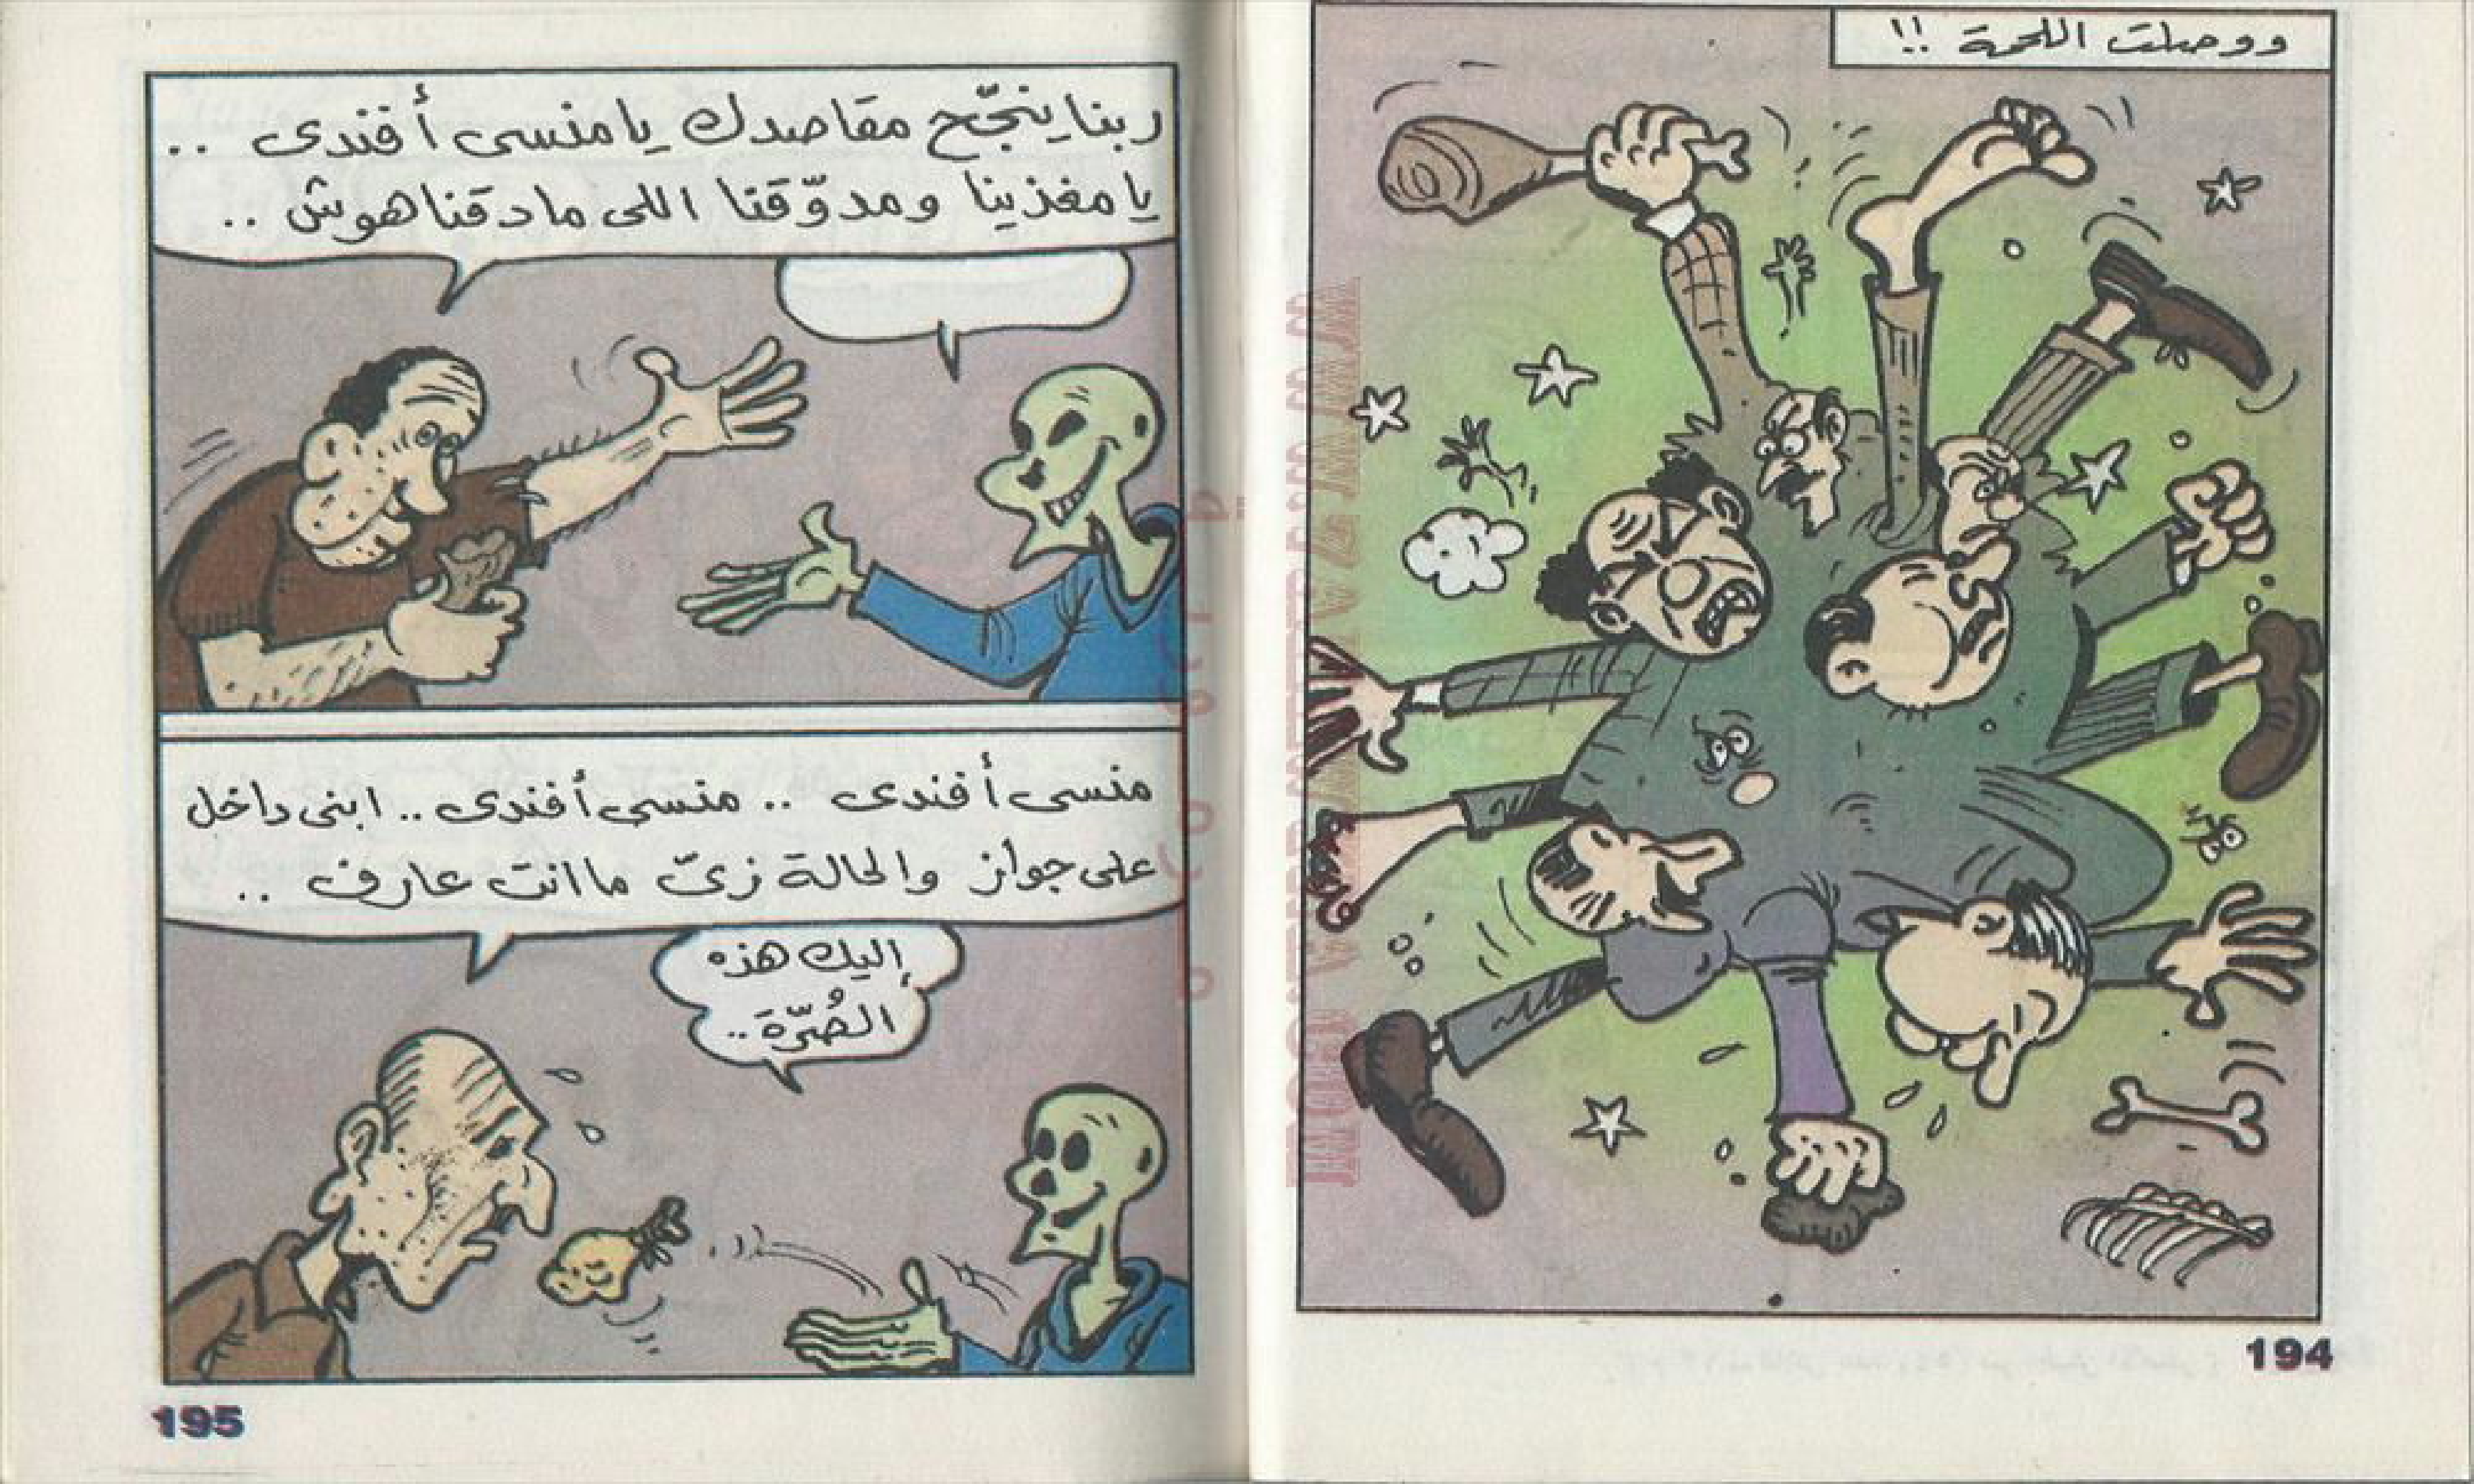 ووصلت اللحمة !!
194
ربنا ينجّح مقاصدك يا منسى أفندى ..
يا مغذينا ومدوّقنا اللى ما دقناهوش ..
منسى أفندى .. منسى أفندى .. ابنى داخل
على جواز والحالة زىّ ما انت عارف ..
إليك هذه
الصُرّة ..
195